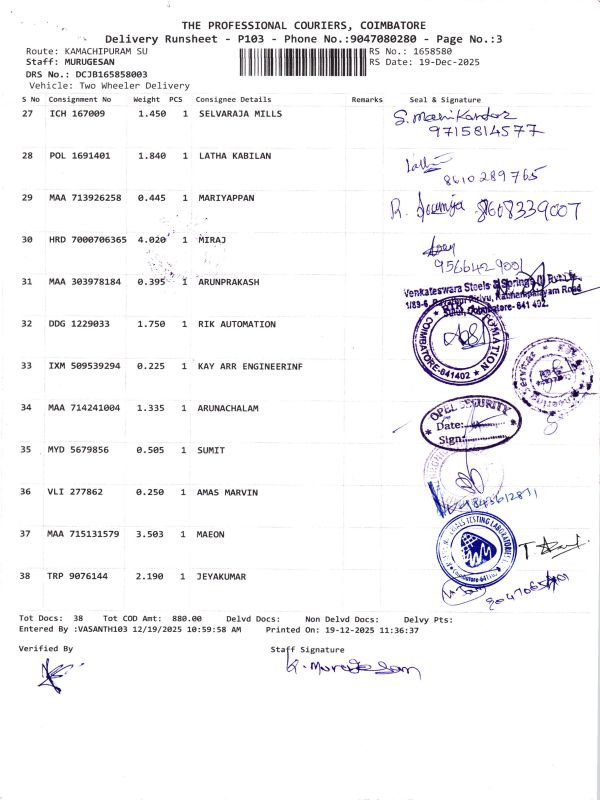 THE PROFESSIONAL COURIERS, COIMBATORE
Delivery Runsheet - P103 - Phone No.:9047080280 - Page No.:3
Route: KAMACHIPURAM SU
RS No.: 1658580
Staff: MURUGESAN
RS Date: 19-Dec-2025
DRS No.: DCJB165858003
Vehicle: Two Wheeler Delivery
S No Consignment No Weight PCS Consignee Details Remarks Seal & Signature
27 ICH 167009 1.450 1 SELVARAJA MILLS
S. Manikandar
9715814577
28 POL 1691401 1.840 1 LATHA KABILAN
8610289765
29 MAA 713926258 0.445 1 MARIYAPPAN
R. Soumya 8608339007
30 HRD 7000706365 4.020 1 MIRAJ
9566429001
31 MAA 303978184 0.395 1 ARUNPRAKASH
Venkateswara Steels & Springs (I) Pvt Ltd
Sulur, Coimbatore- 641 402.
32 DDG 1229033 1.750 1 RIK AUTOMATION
RIK AUTOMATION
COIMBATORE-641402
33 IXM 509539294 0.225 1 KAY ARR ENGINEERINF
34 MAA 714241004 1.335 1 ARUNACHALAM
OPEL SECURITY
Date:
Sign:
35 MYD 5679856 0.505 1 SUMIT
36 VLI 277862 0.250 1 AMAS MARVIN
9843612871
37 MAA 715131579 3.503 1 MAEON
TESTING LABORATORIES
38 TRP 9076144 2.190 1 JEYAKUMAR
Tot Docs: 38 Tot COD Amt: 880.00 Delvd Docs: Non Delvd Docs: Delvy Pts:
Entered By :VASANTH103 12/19/2025 10:59:58 AM Printed On: 19-12-2025 11:36:37
Verified By
Staff Signature
K. Murugesan